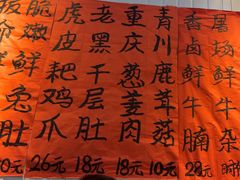 脆嫩鲜兔肚
虎皮耙鸡爪 26元
老黑千层肚 18元
重庆葱姜肉 18元
青川鹿茸菇 10元
香卤鲜牛腩 28元
屠场鲜牛杂